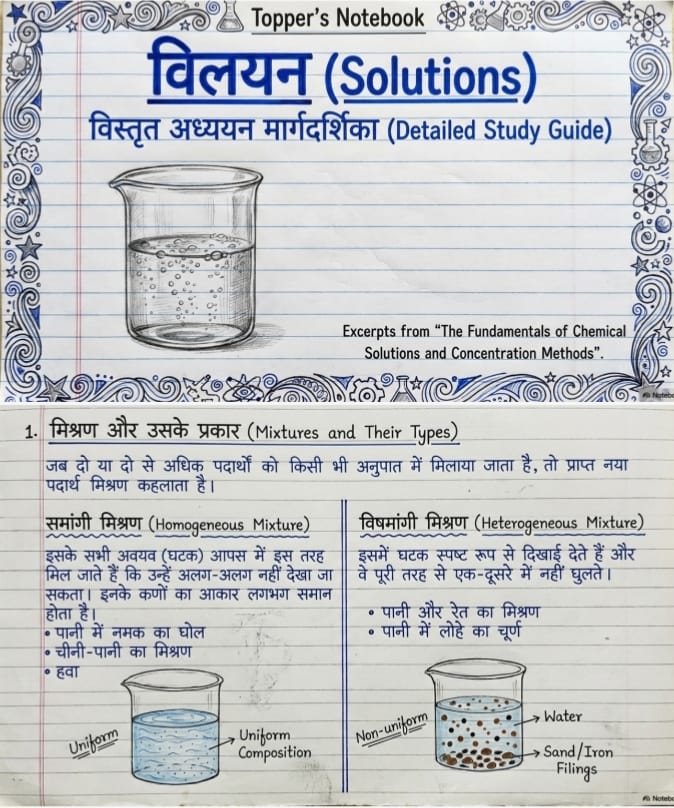 Topper's Notebook
विलयन (Solutions)
विस्तृत अध्ययन मार्गदर्शिका (Detailed Study Guide)
Excerpts from “The Fundamentals of Chemical
Solutions and Concentration Methods”.
1. मिश्रण और उसके प्रकार (Mixtures and Their Types)
जब दो या दो से अधिक पदार्थों को किसी भी अनुपात में मिलाया जाता है, तो प्राप्त नया
पदार्थ मिश्रण कहलाता है।
समांगी मिश्रण (Homogeneous Mixture)
इसके सभी अवयव (घटक) आपस में इस तरह
मिल जाते हैं कि उन्हें अलग-अलग नहीं देखा जा
सकता। इनके कणों का आकार लगभग समान
होता है।
• पानी में नमक का घोल
• चीनी-पानी का मिश्रण
• हवा
Uniform
Uniform
Composition
विषमांगी मिश्रण (Heterogeneous Mixture)
इसमें घटक स्पष्ट रूप से दिखाई देते हैं और
वे पूरी तरह से एक-दूसरे में नहीं घुलते।
• पानी और रेत का मिश्रण
• पानी में लोहे का चूर्ण
Non-uniform
Water
Sand/Iron
Filings